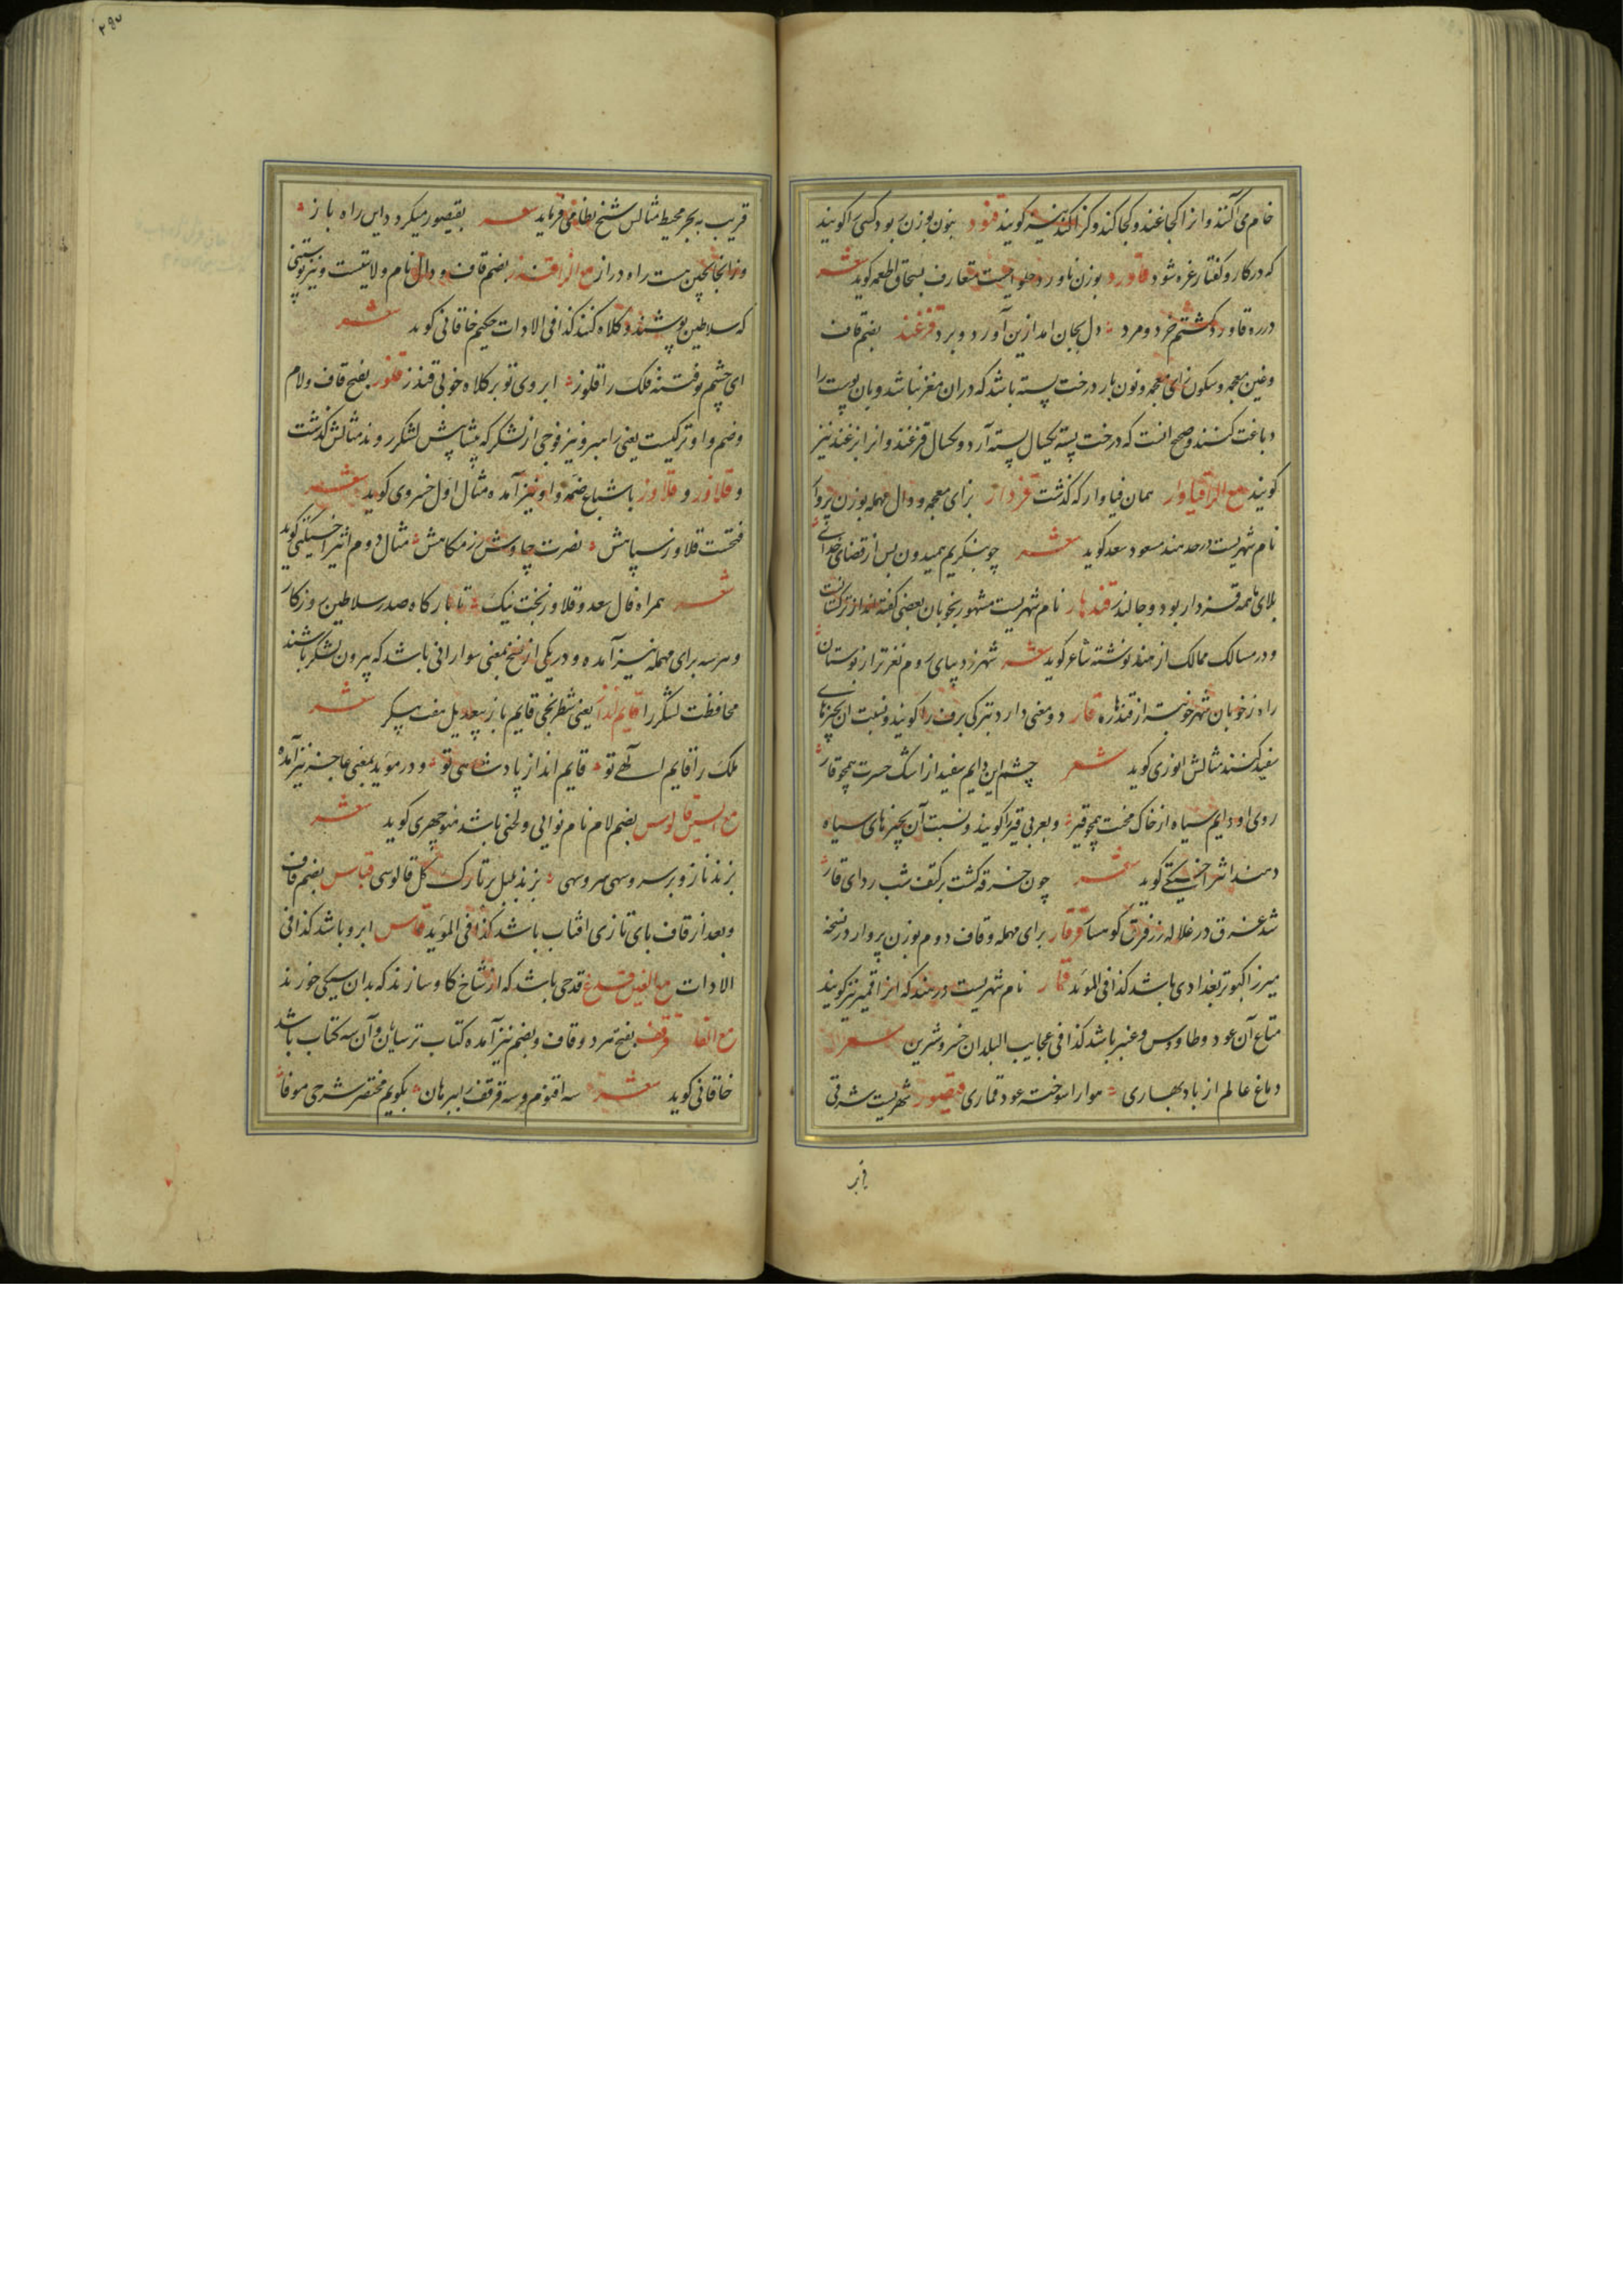 خام می آکند و انرا کجاغند و کجاکند و کژاکند نیز کویند قنود بنون بوزن ربود کسی را کویند
که در کار و کفتار غره شود قاورد بوزن ناورد حلوا ایست متعارف بسحاق اطعمه کوید شعر
در ره قاورد کشتم خرد و مرد دل بجان امد ازین آورد و برد قزغند بضم قاف
وغین معجمه وسکون زای معجمه ونون بار درخت پسته باشد که دران مغز نباشد وبان پوست را
دباغت کنند وصحیح انست که درخت پسته یکسال پسته آرد ویکسال قزغند وانرا بزغند نیز
کویند مع الرا قیاوار همان فیاوار که کذشت قزدار بزای معجمه و دال مهمله بوزن پروار
نام شهریست در حد هند مسعود سعد کوید شعر چو بنکریم همیدون پس از قضای خدای
بلای ما همه قزدار بود و جالندر قندهار نام شهریست مشهور بخوبان بعضی کفته‌اند از ترکستانست
و در مسالک ممالک از هند نوشته شاعر کوید شعر شهر ز دیبای روم نغزتر از بوستان
راه ز خوبان شهر خوبتر از قندهار قار دو معنی دارد بترکی برف را کویند و نسبت ان بچیزهای
سفید کنند مثالش انوری کوید شعر چشم این دایم سفید از اشک حسرت همچو قار
روی او دایم سیاه از خاک محنت همچو قیر و بعربی قیر را کویند و نسبت آن بچیزهای سیاه
دهند اثیر اخسیکتی کوید شعر چون خرقه کشت بر کتف شب ردای قار
شد غرق در غلاله زر فرق کوهسار قرقار برای مهمله و قاف دوم بوزن پروار در نسخه
میرزا کبوتر بغدادی باشد کذا فی الموید قمار نام شهریست در هند که انرا قمیر نیز کویند
متاع آن عود و طاووس و عنبر باشد کذا فی عجایب البلدان خسرو شیرین شعر
دماغ عالم از باد بهاری هوا را سوخته عود قماری قیصور شهریست شرقی
قریب به بحر محیط مثالش شیخ نظامی فرماید شعر بقیصور میکردد این راه باز
وز انجا بچین هست راه دراز مع الزا قندز بضم قاف و دال نام ولایتیست و نیز پوستینی
که سلاطین پوشند و کلاه کنند کذا فی الادات حکیم خاقانی کوید شعر
ای چشم و فتنه فلک را قلوز ابروی تو بر کلاه خوبی قندز قلوز بفتح قاف ولام
وضم واو ترکیست یعنی رامبر و نیز فوجی از لشکر که پیشاپیش لشکر روند مثالش کذشت
و قلاوز و قلاوز باشباع ضمه واو نیز آمده مثال اول خسروی کوید شعر
فتحست قلاوز سپاهش نصرت چاوش رزمکاهش مثال دوم اثیر اخسیکتی کوید
شعر همراه فال سعد و قلاوز بخت نیک تا بارکاه صدر سلاطین روزکار
و هر سه برای مهمله نیز آمده و در یکی از نسخ بمعنی سوارانی باشد که پیرون لشکر باشند
محافظت لشکر را قایم انداز یعنی شطرنجی قایم باز بیعدیل هفت پیکر شعر
ملک را قایم الهی تو قایم انداز پادشاهی تو و در موید بمعنی عاجز نیز آمده
مع السین قالوس بضم لام نام نوایی و لحنی باشد منوچهری کوید شعر
بزند نازو بر سرو سهی سروسهی بزند بلبل بر تارک کل قالوسی قباس بضم قاف
و بعد از قاف بای تازی افتاب باشد کذا فی الموید قاس ابرو باشد کذا فی
الادات مع الغین قدغ قدحی باشد که از شاخ کاو سازند که بدان سیکی خورند
مع الفا قرقف بفتح هردو قاف و بضم نیز آمده کتاب ترسایان و آن سه کتاب باشد
خاقانی کوید شعر سه اقنوم و سه قرقف را ببرهان بکویم مختصر شرح موفا